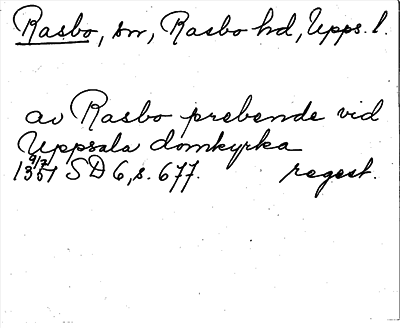 Rasbo, sn, Rasbo hd, Upps. l.
av Rasbo prebende vid
Uppsala domkyrka
9/7
1351 SD 6, s. 677. regest.